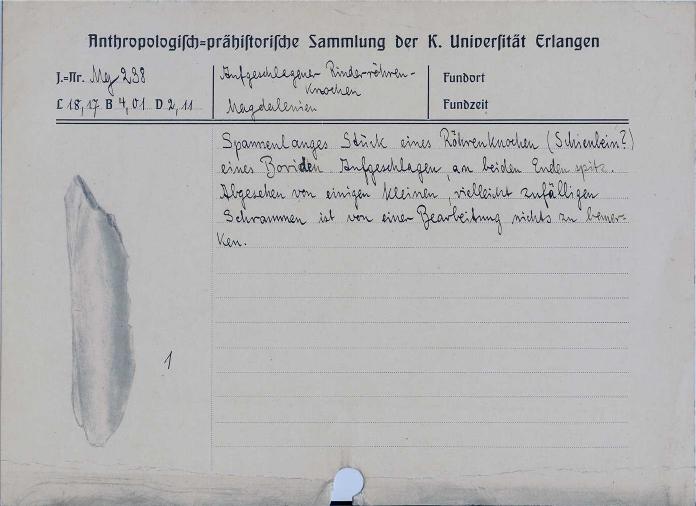 Anthropologisch=prähistorische Sammlung der K. Universität Erlangen
J.=Nr. Mg 238
L 18,17 B 4,01 D 2,11
Aufgeschlagener Rinderröhren-
knochen
Magdalenien
Fundort
Fundzeit
Spannenlanges Stück eines Röhrenknochen (Schienbein?)
eines Boviden. Aufgeschlagen, an beiden Enden spitz.
Abgesehen von einigen kleinen, vielleicht zufälligen
Schrammen ist von einer Bearbeitung nichts zu bemer-
ken.
1